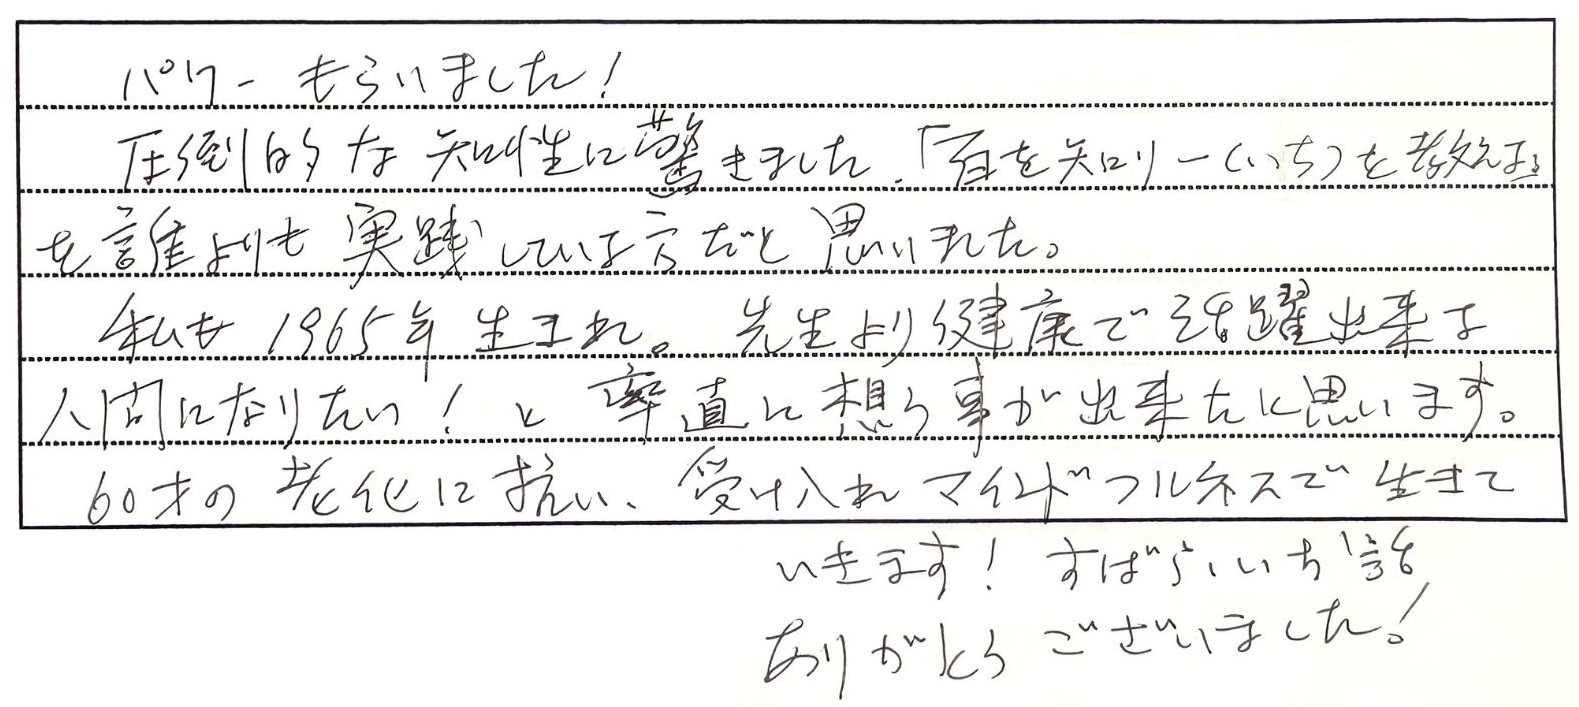 パワーもらいました!
圧倒的な知性に驚きました.「百を知り一(いち)を教える」
を誰よりも実践している方だと思いました。
私も1965年生まれ。先生より健康で活躍出来る
人間になりたい!と率直に想う事が出来たと思います。
60才の老化に抗い、受け入れマインドフルネスで生きて
いきます!すばらしいお話
ありがとうございました!